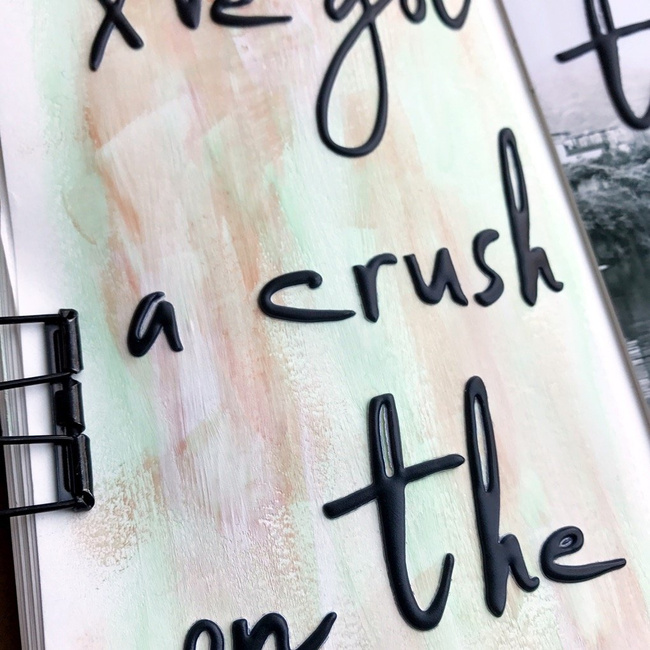 I've got
a crush
on the